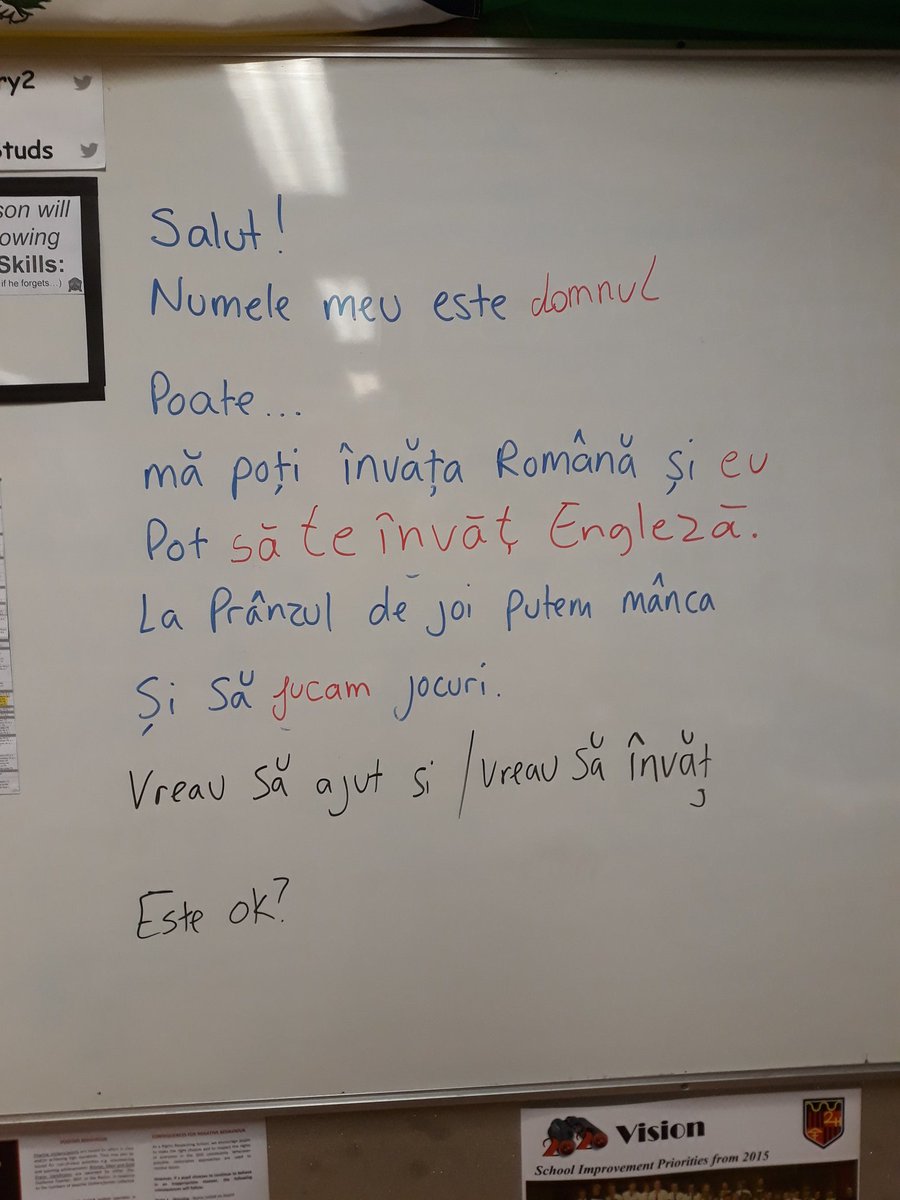 ry2
studs
son will
owing
Skills:
if he forgets...)
Salut!
Numele meu este domnul
Poate...
mă poți învăța Română și eu
Pot să te învăț Engleză.
La Prânzul de joi putem mânca
și să jucam jocuri.
Vreau să ajut si / vreau să învăț
Este ok?
2020 Vision
School Improvement Priorities from 2015